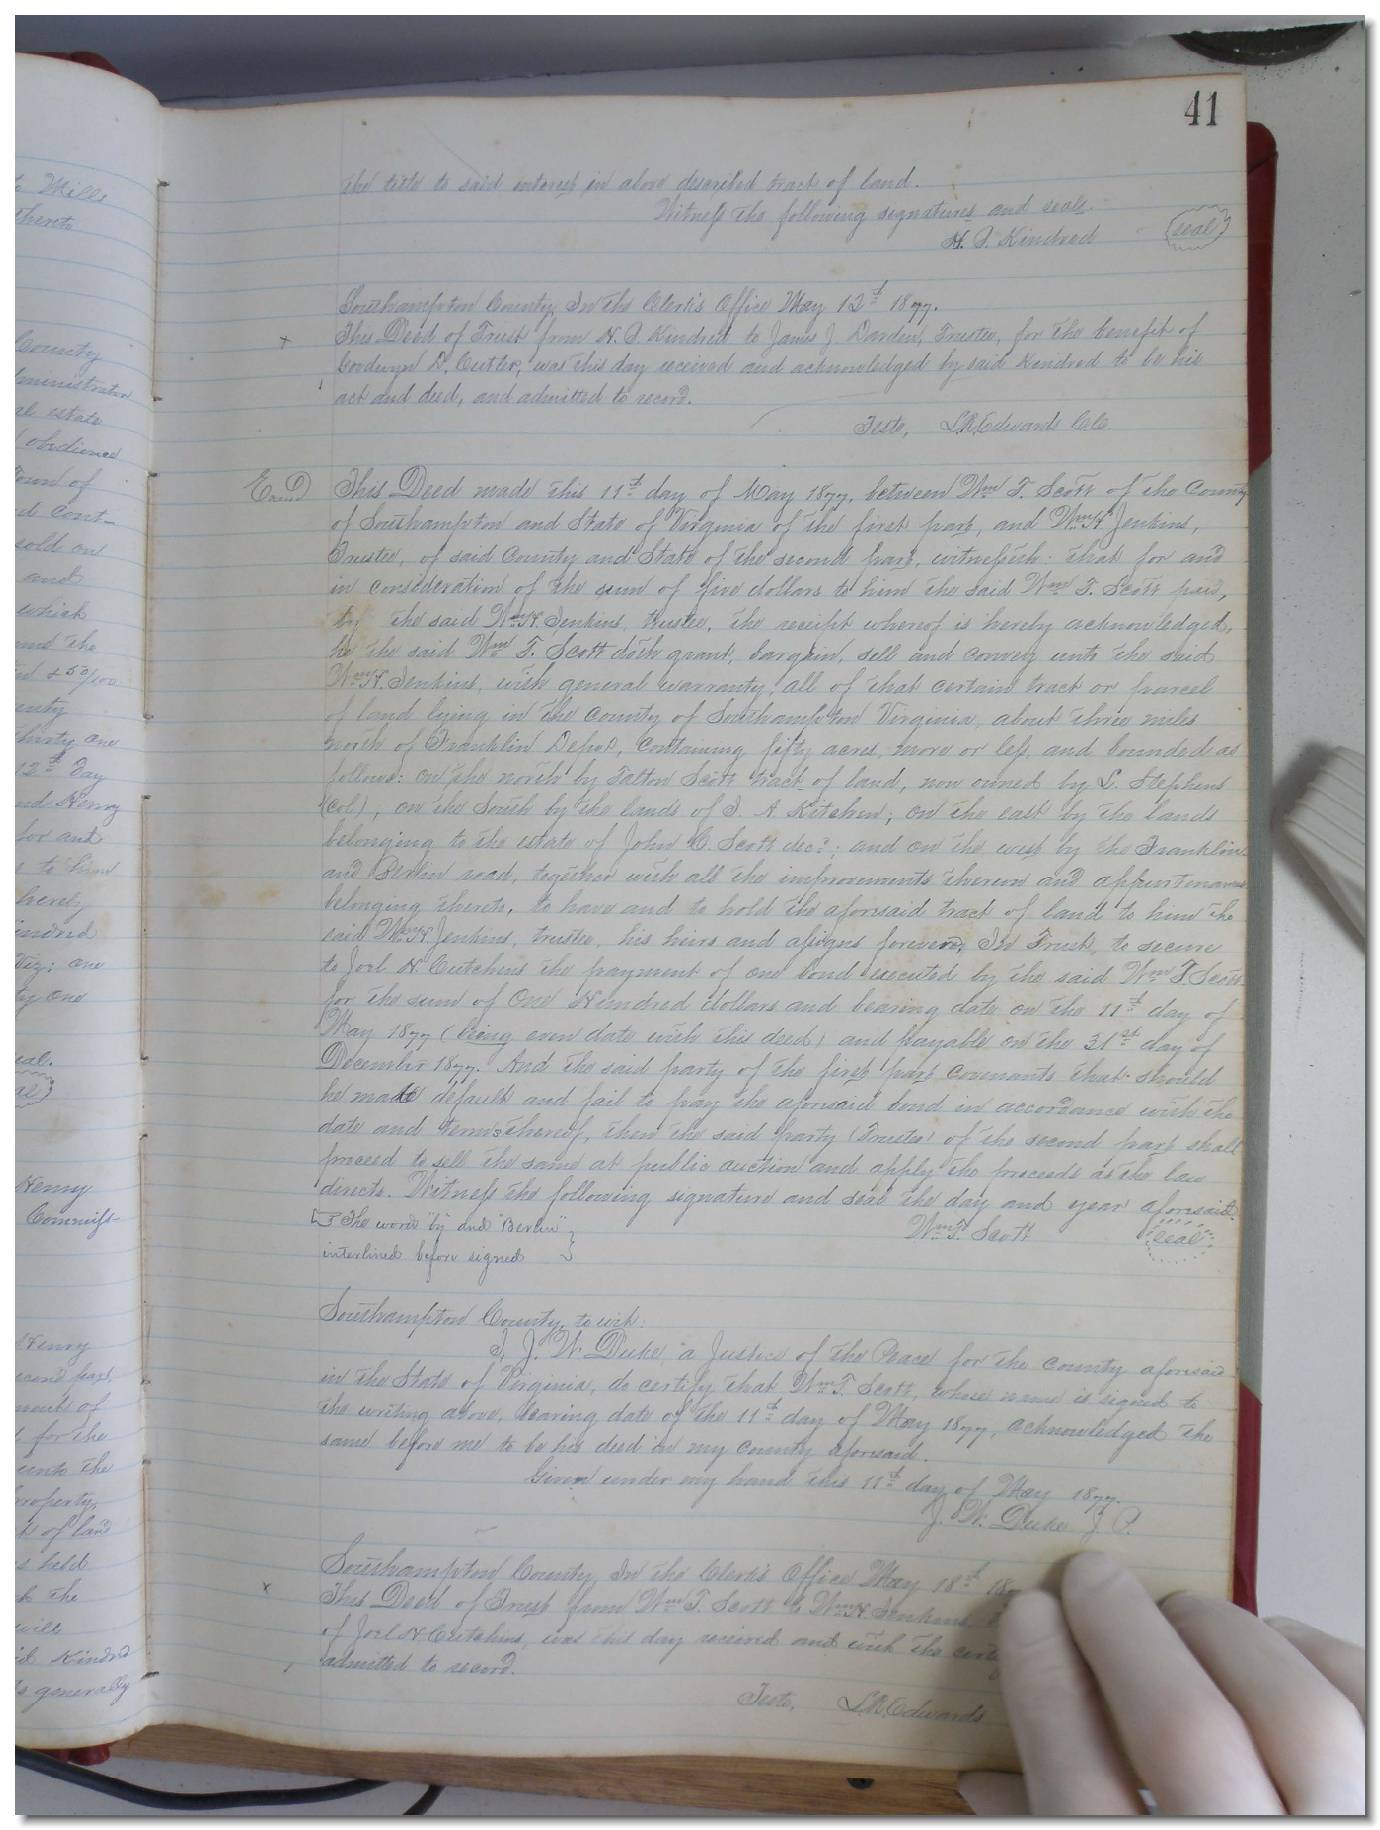 41
te Mills
thereto
County
dministrator
al estate
obedience
Town of
d cont-
sold on
and
which
and the
53/100
enty
thirty one
12th day
nd Henry
for and
s to him
hereby
Viz: one
ty one
eal.
al
Henry
Commiss-
Henry
econd part,
ment of
t for the
unto the
property,
t of land
s held
the
will
id Kindred
s generally
the title to said interest in above described tract of land.
Witness the following signatures and seals.
H. P. Kindred (seal)
Southampton County, In the Clerk's Office May 12th 1877.
x This Deed of Trust from H. P. Kindred to James J Darden, Trustee, for the benefit of
Goodwyn D. Cutler, was this day received and acknowledged by said Kindred to be his
act and deed, and admitted to record.
Teste, L.R. Edwards C.C.
E and D This Deed made this 11th day of May 1877, between Wm T. Scott of the County
of Southampton and State of Virginia of the first part, and Wm H. Jenkins,
Trustee, of said County and State of the second part, witnesseth: that for and
in consideration of the sum of five dollars to him the said Wm T. Scott paid,
by the said Wm H. Jenkins, trustee, the receipt whereof is hereby acknowledged,
he the said Wm T. Scott doth grant, bargain, sell and convey unto the said
Wm H. Jenkins, with general warranty, all of that certain tract or parcel
of land lying in the County of Southampton Virginia, about three miles
north of Franklin Depot, containing fifty acres, more or less, and bounded as
follows: on the north by Tatton Scott tract of land, now owned by L. Stephens
(col), on the South by the lands of J. A Kitchen; on the east by the lands
belonging to the estate of John C. Scott decd; and on the west by the Franklin
and Berlin road, together with all the improvements thereon and appurtenances
belonging thereto, to have and to hold the aforesaid tract of land to him the
said Wm H. Jenkins, trustee, his heirs and assigns forever, In Trust, to secure
to Joel H. Cutchins the payment of one bond executed by the said Wm T Scott
for the sum of One Hundred dollars and bearing date on the 11th day of
May 1877 (being even date with this deed) and payable on the 31st day of
December 1877. And the said party of the first part covenants that should
he made default and fail to pay the aforesaid bond in accordance with the
date and terms thereof, then the said party (Trustee) of the second part shall
proceed to sell the same at public auction and apply the proceeds as the law
directs. Witness the following signature and seal the day and year aforesaid.
The word "by" and "Berlin" Wm T. Scott (seal)
interlined before signed
Southampton County, to wit:
I, J. W. Duke, a Justice of the Peace for the County aforesaid
in the State of Virginia, do certify that Wm T. Scott, whose name is signed to
the writing above, bearing date of the 11th day of May 1877, acknowledged the
same before me to be his deed in my county aforesaid.
Given under my hand this 11th day of May 1877.
J. W. Duke J. P.
Southampton County, In the Clerk's Office May 18th 18
x This Deed of Trust from Wm T. Scott to Wm H Jenkins
of Joel H Cutchins, was this day received and with the certi
admitted to record.
Teste, L.R. Edwards